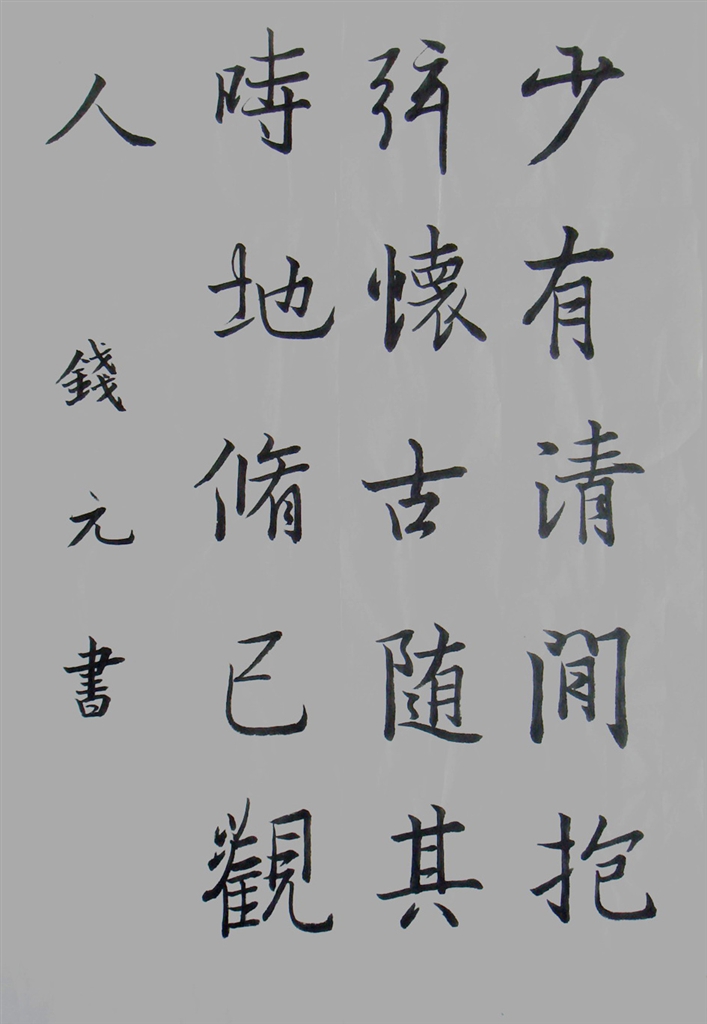 少有清閒抱
弦懷古随其
時地脩己觀
人 錢元書